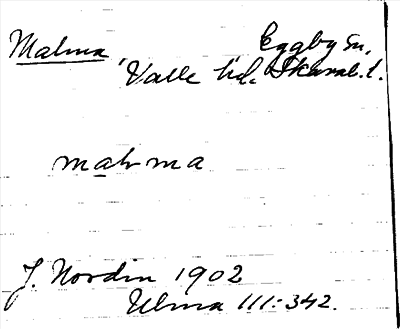 Malma, Eggby sn,
Valle hd. Skarab. l.
malma
J. Nordin 1902
Ulma 111:342.